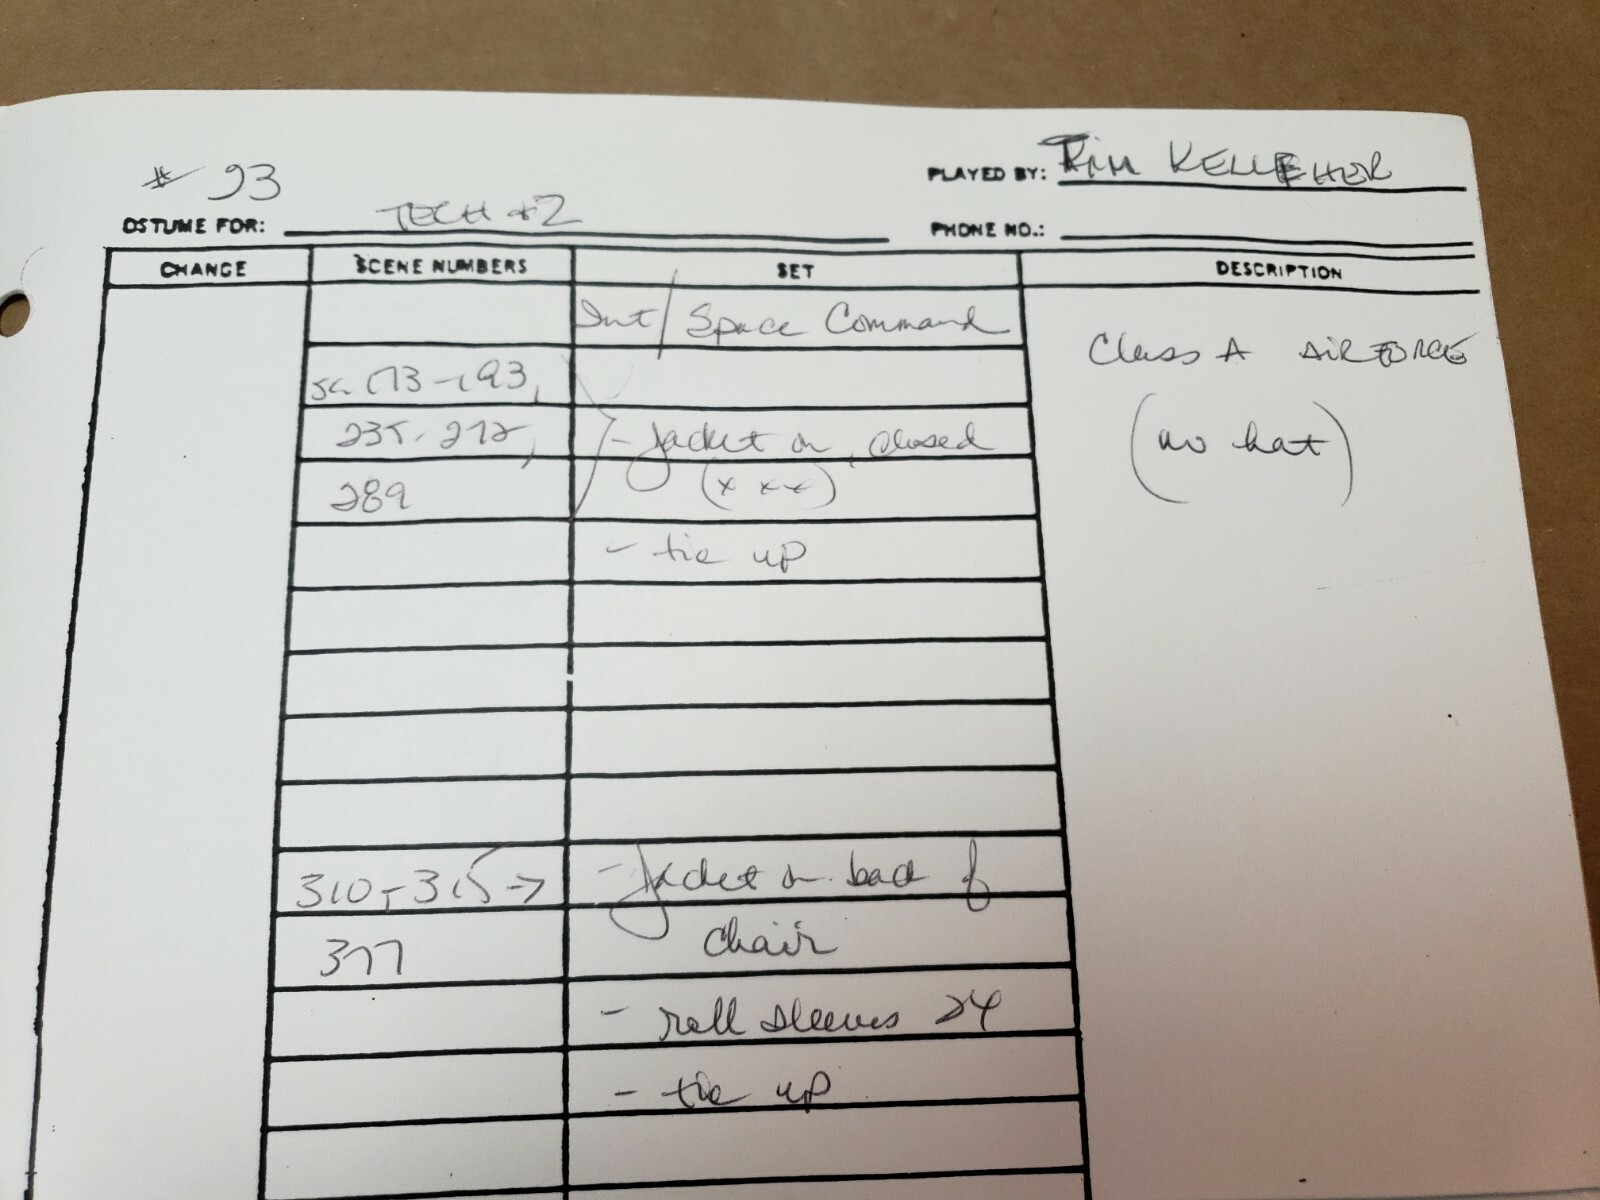 # 93
PLAYED BY: TIM KELLEHER
OSTUME FOR: TECH #2
PHONE NO.:
CHANGE SCENE NUMBERS SET DESCRIPTION
Int/ Space Command
Class A AIR FORCE
sc. 173-193,
235-272, - Jacket on, closed
(no hat)
289 (xxx)
- tie up
310-315 → - Jacket on back of
377 chair
- roll sleeves
- tie up